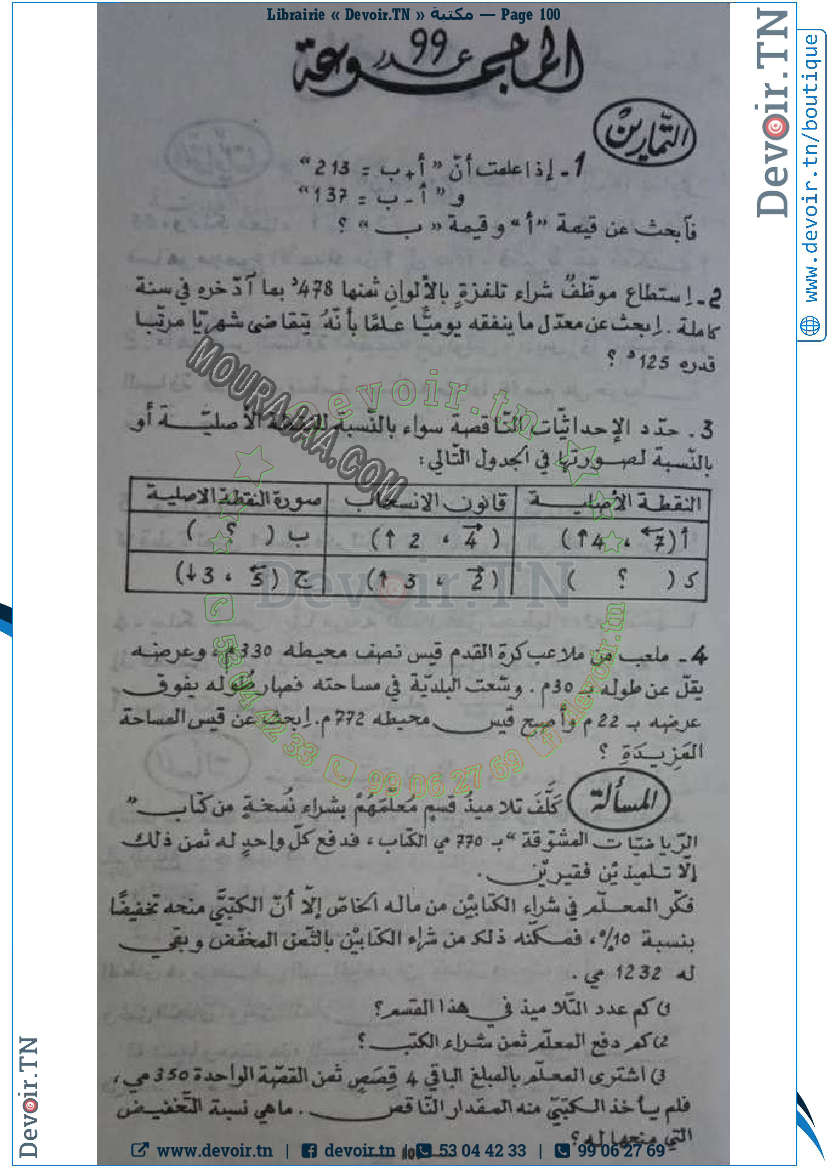 Librairie « Devoir.TN » مكتبة — Page 100
المجموعة عدد 99
التمارين
1- إذا علمت أنّ "أ + ب = 213"
و "أ - ب = 137"
فابحث عن قيمة "أ" و قيمة "ب" ؟
2- إستطاع موظّف شراء تلفزة بالألوان ثمنها 478 د بما آدّخره في سنة
كاملة. إبحث عن معدل ما ينفقه يوميًّا علمًا بأنّه يتقاضى شهريًا مرتّبا
قدره 125 د ؟
3. حدّد الإحداثيّات النّاقصة سواء بالنّسبة للنقطة الأصليّة أو
بالنّسبة لصورتها في الجدول التالي:
النقطة الأصليّة | قانون الانسحاب | صورة النقطة الاصلية
أ (7← ، 4↑) | (4→ ، 2↑) | ب ( ؟ )
د ( ؟ ) | (2→ ، 3↑) | ج (5← ، 3↓)
4- ملعب من ملاعب كرة القدم قيس نصف محيطه 330م، وعرضه
يقلّ عن طوله بـ 30م. وسّعت البلديّة في مساحته فصار طوله يفوق
عرضه بـ 22م وأصبح قيس محيطه 772م. إبحث عن قيس المساحة
المزيدة ؟
المسألة
كلّف تلاميذ قسم معلّمهم بشراء نسخة من كتاب "
الرياضيّات المشوّقة" بـ 770 مي الكتاب، فدفع كلّ واحد له ثمن ذلك
إلّا تلميذين فقيرين.
فكّر المعلّم في شراء الكتابين من ماله الخاصّ إلّا أنّ الكتبيّ منحه تخفيضًا
بنسبة 10%، فمكّنه ذلك من شراء الكتابين بالثّمن المخفّض وبقي
له 1232 مي.
1) كم عدد التّلاميذ في هذا القسم؟
2) كم دفع المعلّم ثمن شراء الكتب؟
3) اشترى المعلّم بالمبلغ الباقي 4 قصص ثمن القصّة الواحدة 350 مي،
فلم يأخذ الكتبيّ منه المقدار النّاقص. ما هي نسبة التّخفيض
التي منحها له ؟
MOURAJAA.COM
devoir.tn
Devoir.TN
53 04 42 33
99 06 27 69
devoir.tn
Devoir.TN
www.devoir.tn/boutique
Devoir.TN
www.devoir.tn | devoir.tn | 53 04 42 33 | 99 06 27 69